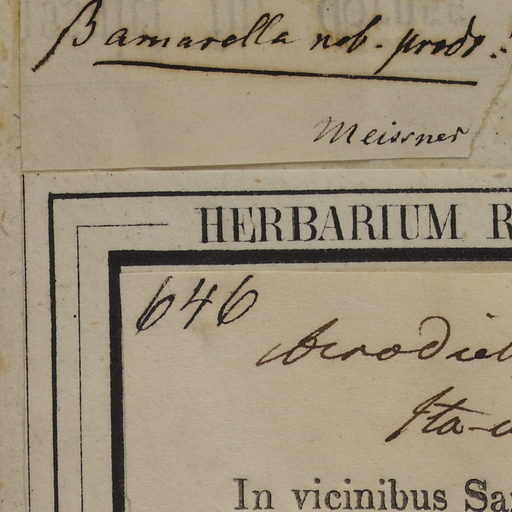 β amarella nob. prodr.
Meissner
HERBARIUM R
646
Acrodicl
Ita-u
In vicinibus Sa